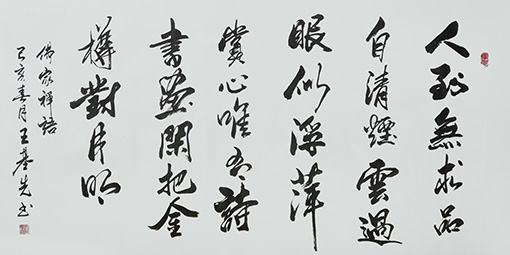 人到無求品
自清煙雲過
眼似浮萍
賞心唯有詩
書畫閑把金
樽對月明
佛家禪語
己亥春月王基先书